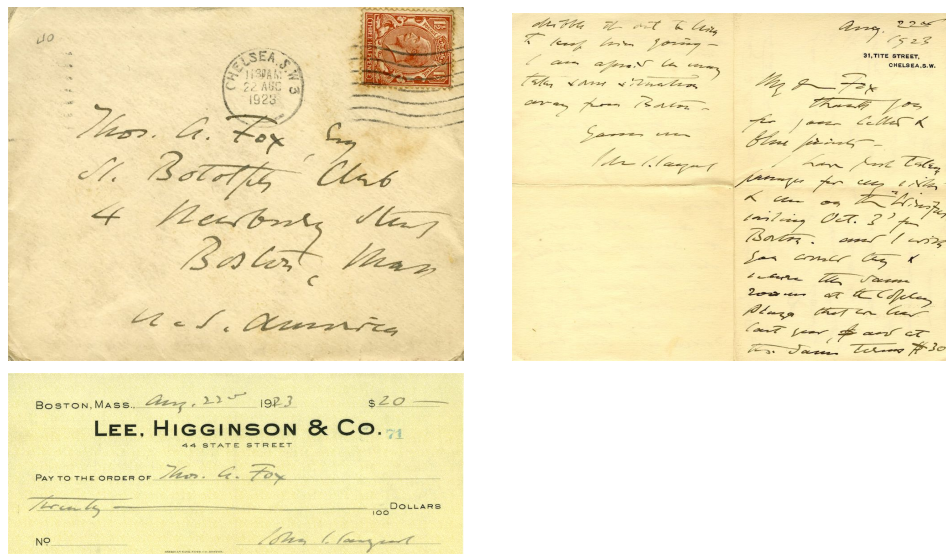 CHELSEA. S.W. 3
11.30 AM
22 AUG
1923
Thos. A. Fox, Esq
St. Botolph Club
4 Newbury Street
Boston, Mass
U. S. America
to keep him going –
I am afraid he may
take some situation
away from Boston –
Yours ever
John S. Sargent
Aug. 22nd
1923
31, TITE STREET,
CHELSEA, S.W.
My dear Fox
Thank you
for your letter &
blue prints –
Have just taken
passages for my sister
& me on the
sailing Oct. 3d for
Boston. and I wish
you would try to
secure the same
rooms at the Copley
Plaza that we had
last year, and at
the same terms $30
BOSTON, MASS., Aug. 22nd 1923 $20 —
LEE, HIGGINSON & CO. 71
44 STATE STREET
PAY TO THE ORDER OF Thos. A. Fox
Twenty — 100 DOLLARS
No John S. Sargent